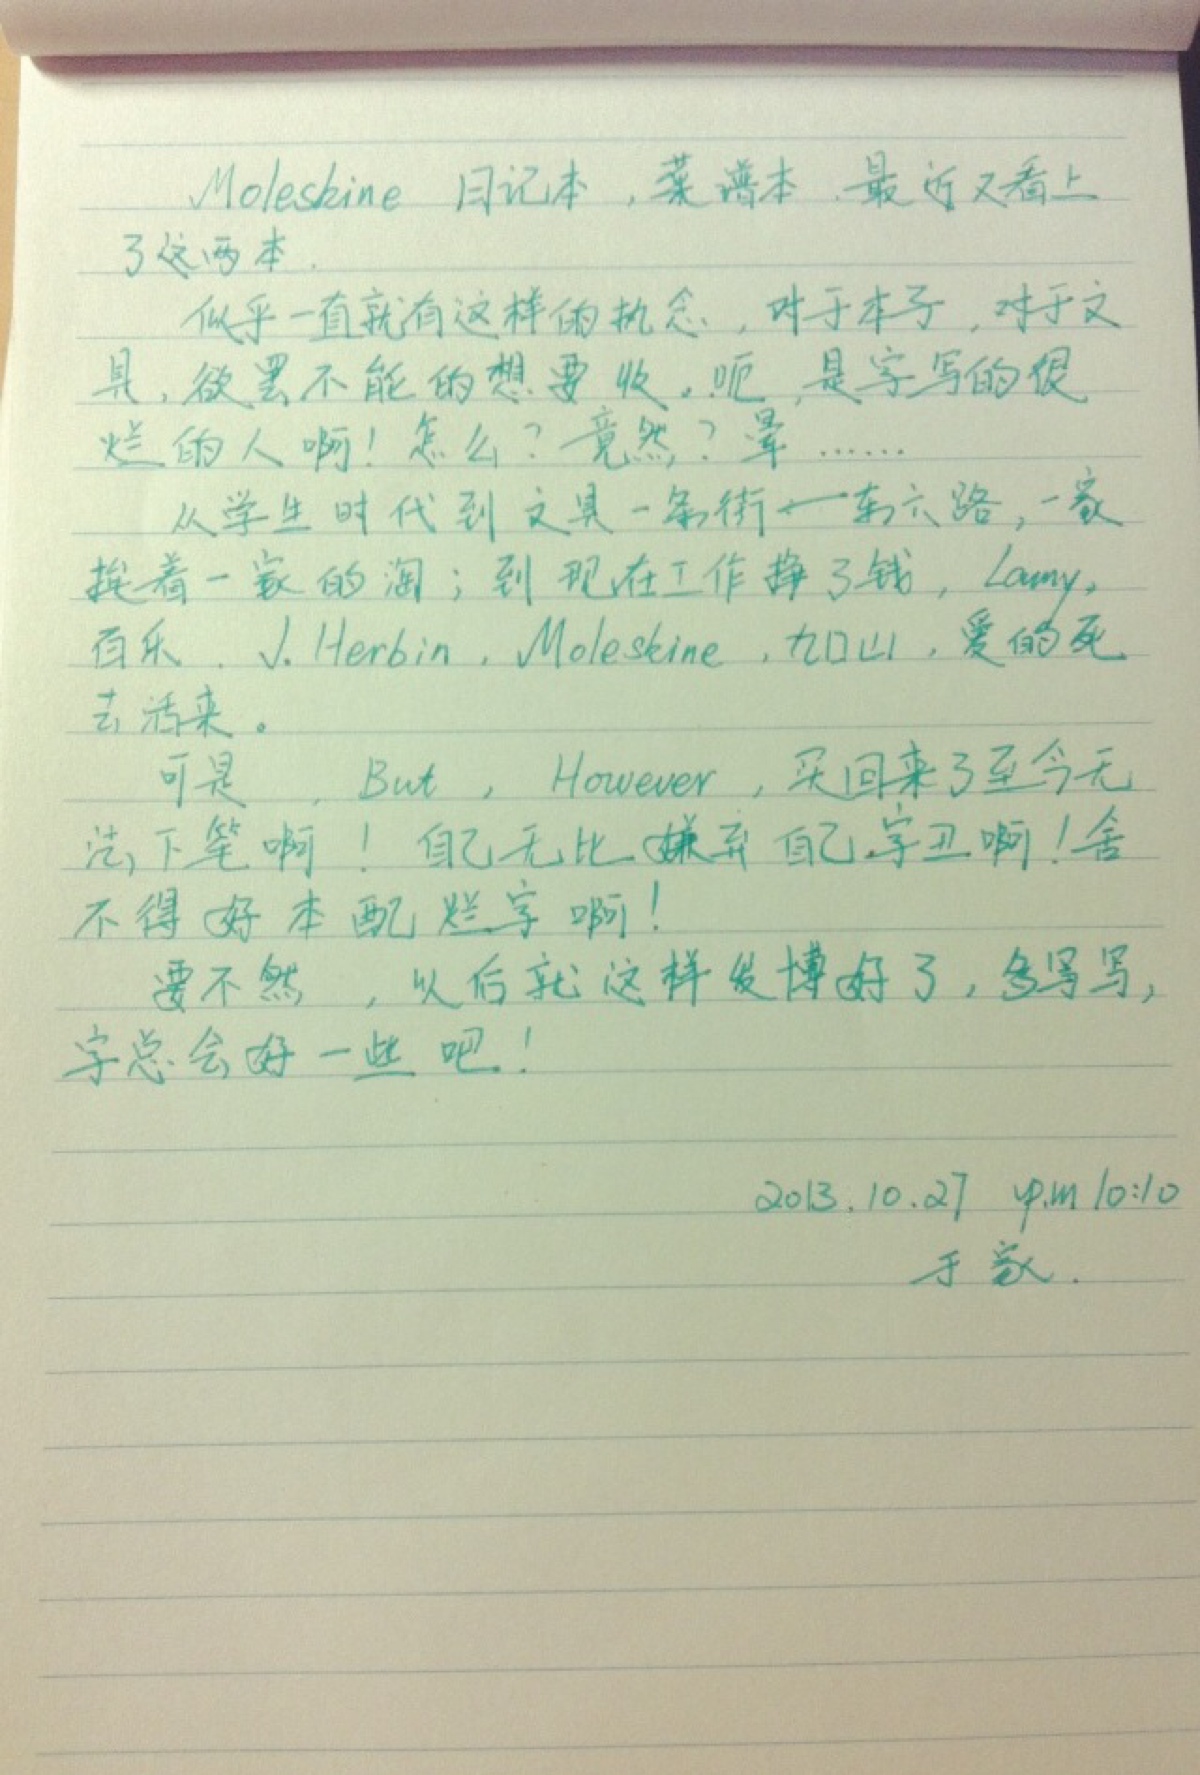 Moleskine 日记本，菜谱本．最近又看上
了这两本．
似乎一直就有这样的执念，对于本子，对于文
具，欲罢不能的想要收。呃，是字写的很
烂的人啊！怎么？竟然？晕……
从学生时代到文具一条街—东六路，一家
挨着一家的淘；到现在工作挣了钱，Lamy，
百乐．J. Herbin．Moleskine，九口山，爱的死
去活来。
可是，But，However，买回来了至今无
法下笔啊！自己无比嫌弃自己字丑啊！舍
不得好本配烂字啊！
要不然，以后就这样发博好了，多写写，
字总会好一些吧！
2013.10.27 p.m 10:10
于家．